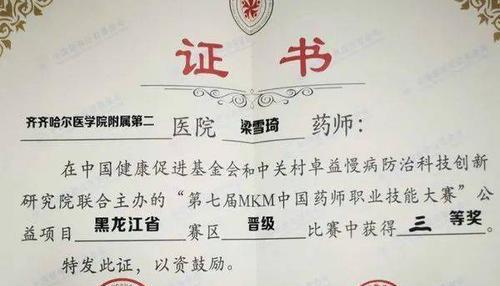 证书
齐齐哈尔医学院附属第二医院 梁雪琦 药师：
在中国健康促进基金会和中关村卓益慢病防治科技创新
研究院联合主办的“第七届MKM中国药师职业技能大赛”公
益项目 黑龙江省 赛区 晋级 比赛中获得 三 等奖。
特发此证，以资鼓励。